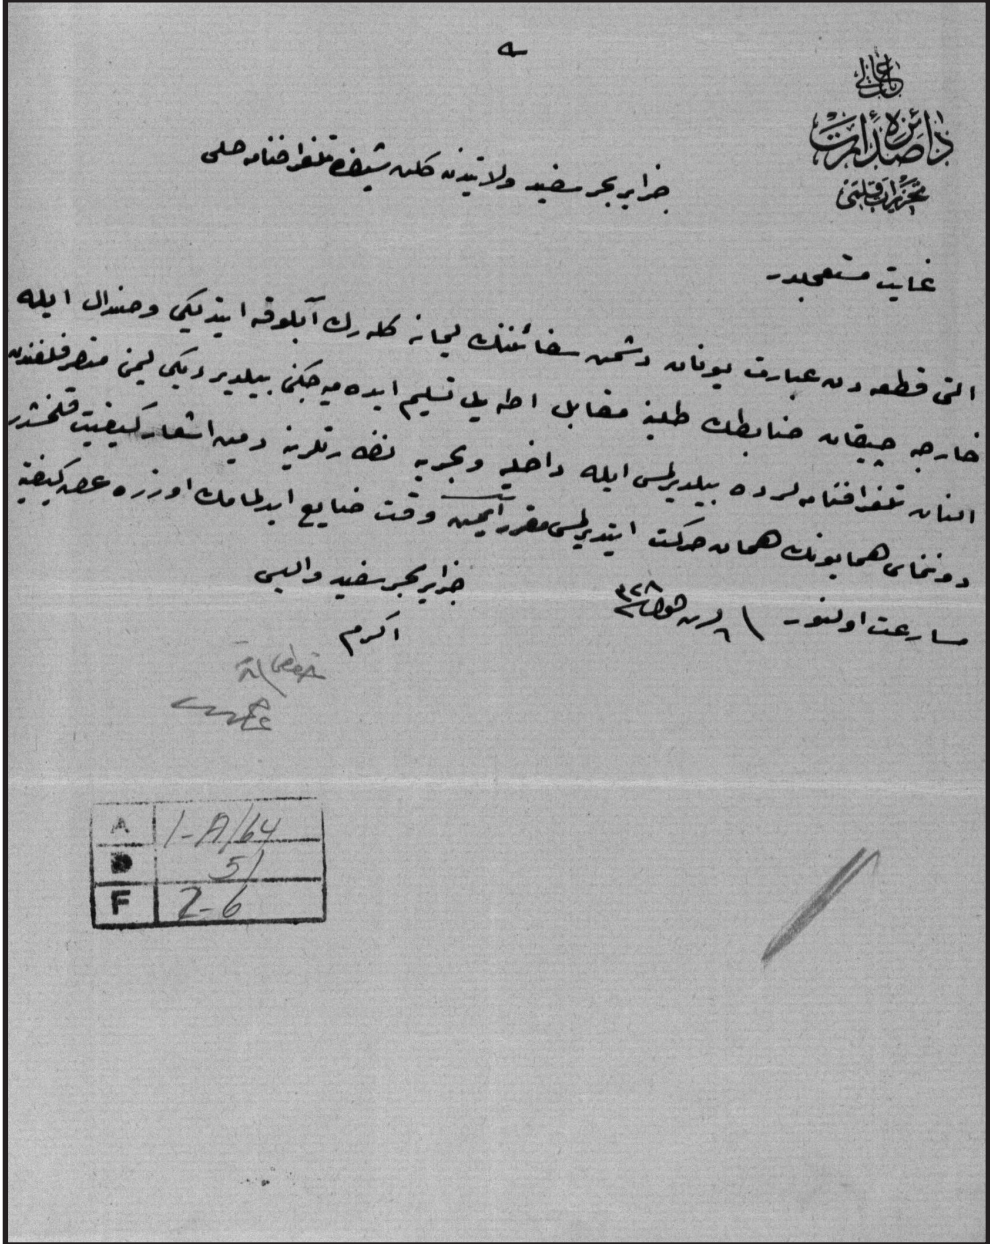 باب عالی
دائرهٔ صدارت
تحریرات قلمی
جزایر بحر سفید ولایتندن کلن شیفره تلغرافنامه حلی
غایت مستعجلدر
التی قطعه دن عبارت یونان دشمن سفائننك لیمانه کله رك آبلوقه ایتدیکی وصندال ایله
خارجه چیقان ضابطك طلبنه مقابل اطه یی تسلیم ایده میه جکنی بیلدیردیکی لیمنی متصرفلغندن
النان تلغرافنامه لرده بیلدیرلمسی ایله داخلیه وبحریه نظارتلرینه دمین اشعار کیفیت قلنمشدر
دونمای همایونك همان حرکت ایتدیرلمسی مقرر ایسه وقت ضایع ایدلمامك اوزره عرض کیفیته
مسارعت اولنور ٨ تشرین اول سنه ٣٢٨
جزایر بحر سفید والیسی
اکرم
A 1-A/64
D 51
F 2-6